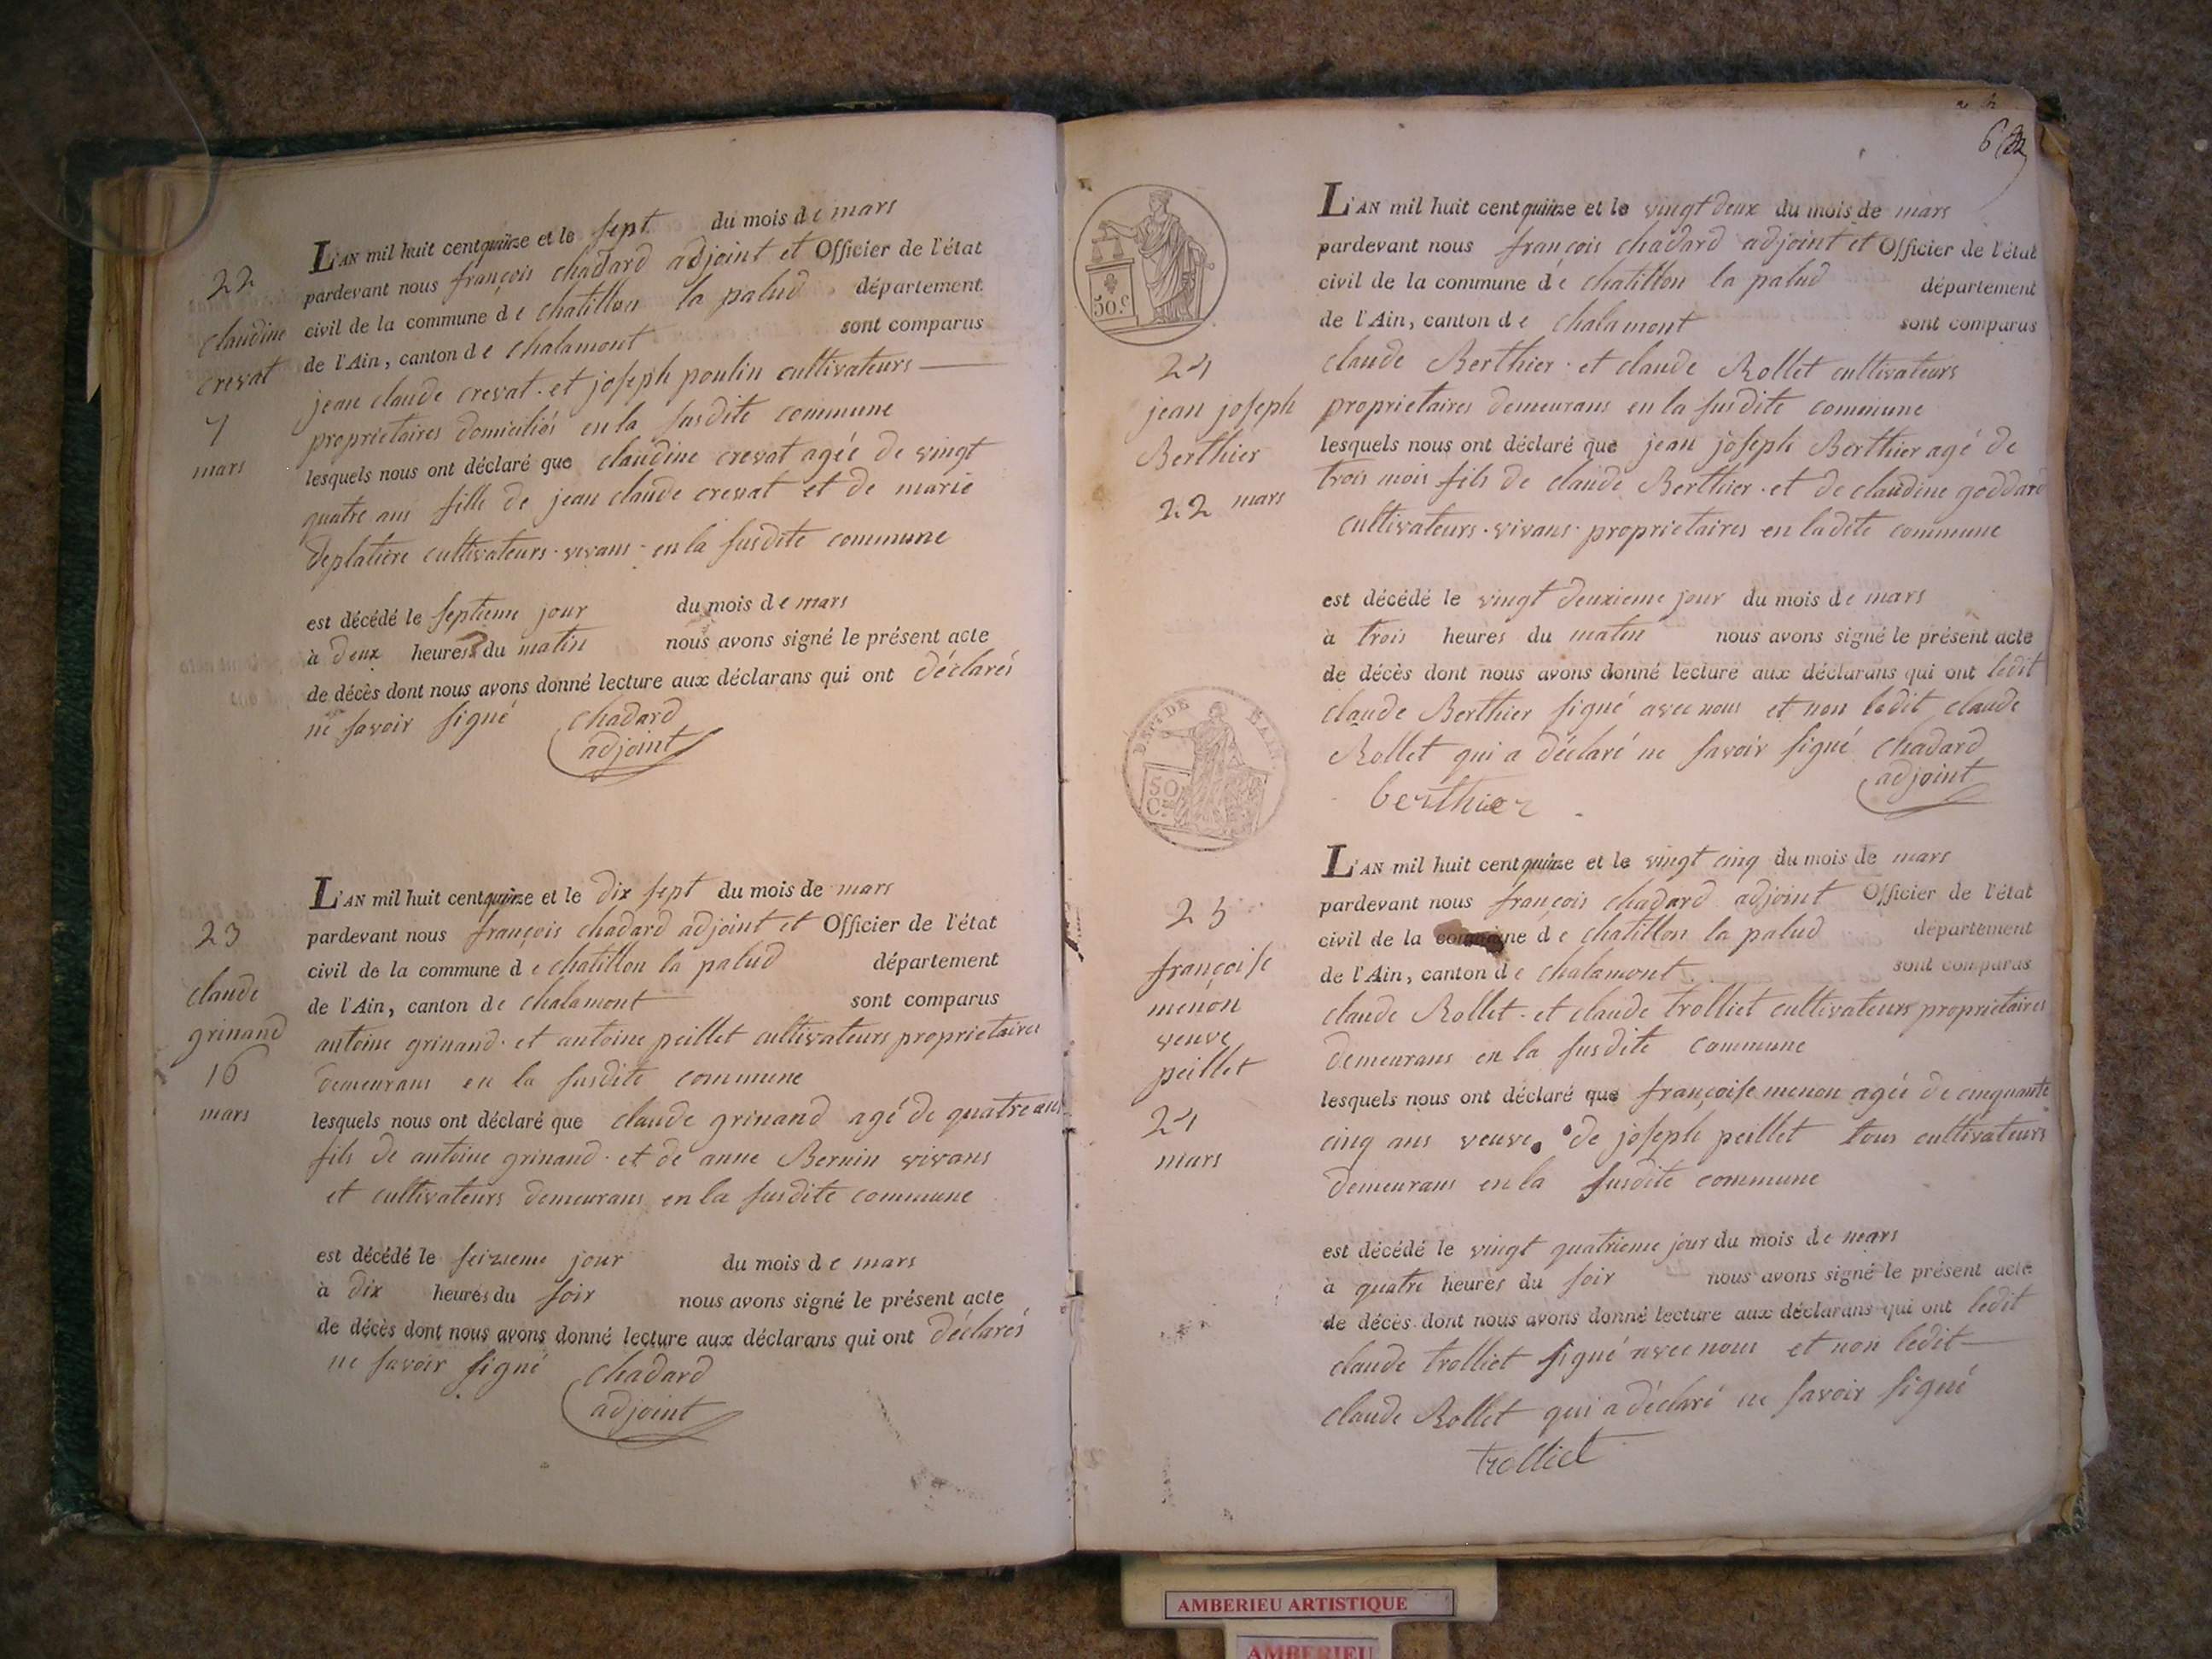 22
claudine
crevat
7
mars
L'AN mil huit cent quinze et le sept du mois de mars
pardevant nous françois chadard adjoint et Officier de l'état
civil de la commune de chatillon la palud département
de l'Ain, canton de chalamont sont comparus
jean claude crevat. et joseph poulin cultivateurs
proprietaires domiciliés en la susdite commune
lesquels nous ont déclaré que claudine crevat agée de vingt
quatre ans fille de jean claude crevat et de marie
deplatiere cultivateurs. vivans. en la susdite commune
est décédé le septieme jour du mois de mars
à deux heures du matin nous avons signé le présent acte
de décès dont nous avons donné lecture aux déclarans qui ont déclarés
ne savoir signé chadard
adjoint
23
claude
grinand
16
mars
L'AN mil huit cent quinze et le dix sept du mois de mars
pardevant nous françois chadard adjoint et Officier de l'état
civil de la commune de chatillon la palud département
de l'Ain, canton de chalamont sont comparus
antoine grinand. et antoine peillet cultivateurs proprietaires
demeurans en la susdite commune
lesquels nous ont déclaré que claude grinand agé de quatre ans
fils de antoine grinand. et de anne Bernin vivans
et cultivateurs demeurans en la susdite commune
est décédé le seizieme jour du mois de mars
à dix heures du soir nous avons signé le présent acte
de décès dont nous avons donné lecture aux déclarans qui ont déclarés
ne savoir signé chadard
adjoint
6
50 c.
24
jean joseph
Berthier
22 mars
L'AN mil huit cent quinze et le vingt deux du mois de mars
pardevant nous françois chadard adjoint et Officier de l'état
civil de la commune de chatillon la palud département
de l'Ain, canton de chalamont sont comparus
claude Berthier. et claude Rollet cultivateurs
proprietaires demeurans en la susdite commune
lesquels nous ont déclaré que jean joseph Berthier agé de
trois mois fils de claude Berthier. et de claudine goddard
cultivateurs. vivans. proprietaires en ladite commune
est décédé le vingt deuxieme jour du mois de mars
à trois heures du matin nous avons signé le présent acte
de décès dont nous avons donné lecture aux déclarans qui ont ledit
claude Berthier signé avec nous et non ledit claude
Rollet qui a déclaré ne savoir signé chadard
adjoint
berthier
DEPt. DE L'AIN
50
Cs.
25
françoise
menon
veuve
peillet
24
mars
L'AN mil huit cent quinze et le vingt cinq du mois de mars
pardevant nous françois chadard adjoint Officier de l'état
civil de la commune de chatillon la palud département
de l'Ain, canton de chalamont sont comparus
claude Rollet. et claude trolliet cultivateurs proprietaires
demeurans en la susdite commune
lesquels nous ont déclaré que françoise menon agée de cinquante
cinq ans veuve de joseph peillet tous cultivateurs
demeurans en la susdite commune
est décédé le vingt quatrieme jour du mois de mars
à quatre heures du soir nous avons signé le présent acte
de décès dont nous avons donné lecture aux déclarans qui ont ledit
claude trolliet signé avec nous et non ledit
claude Rollet qui a déclaré ne savoir signé
trolliet
AMBERIEU ARTISTIQUE
AMBERIEU